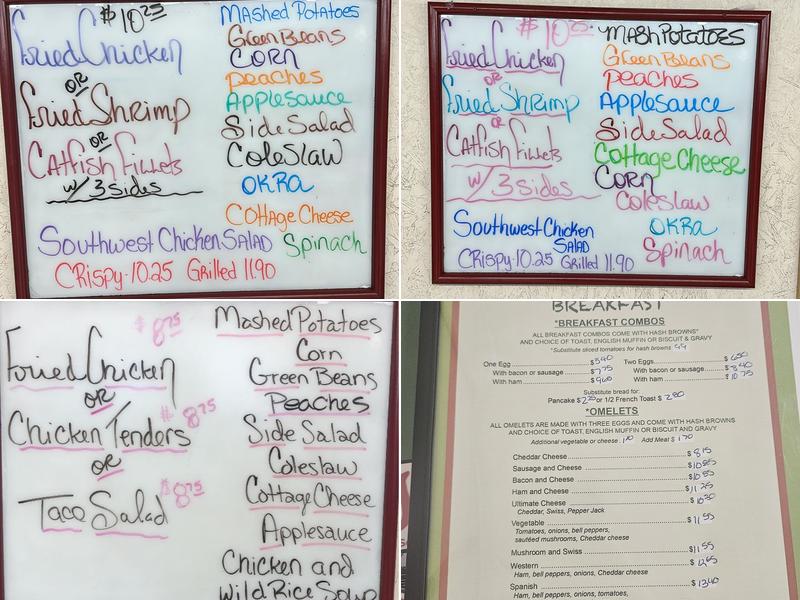 $10.25
Fried Chicken
OR
Fried Shrimp
OR
Catfish Fillets
w/ 3 sides
Mashed Potatoes
Green Beans
Corn
Peaches
Applesauce
Side Salad
Coleslaw
OKRA
Cottage Cheese
Southwest Chicken Salad
Spinach
Crispy-10.25 Grilled 11.90
$10.25
Fried Chicken
OR
Fried Shrimp
OR
Catfish Fillets
w/ 3 sides
Mash Potatoes
Green Beans
Peaches
Applesauce
Side Salad
Cottage Cheese
Corn
Coleslaw
OKRA
Spinach
Southwest Chicken
Salad
Crispy-10.25 Grilled 11.90
$8.75
Fried Chicken
OR
Chicken Tenders $8.75
OR
Taco Salad $8.75
Mashed Potatoes
Corn
Green Beans
Peaches
Side Salad
Coleslaw
Cottage Cheese
Applesauce
Chicken and
Wild Rice Soup
BREAKFAST
*BREAKFAST COMBOS
ALL BREAKFAST COMBOS COME WITH HASH BROWNS*
AND CHOICE OF TOAST, ENGLISH MUFFIN OR BISCUIT & GRAVY
*Substitute sliced tomatoes for hash browns .99
One Egg
With bacon or sausage $7.75
With ham $9.60
Two Eggs
With bacon or sausage $8.40
With ham $10.75
Substitute bread for:
Pancake or 1/2 French Toast $2.80
*OMELETS
ALL OMELETS ARE MADE WITH THREE EGGS AND COME WITH HASH BROWNS
AND CHOICE OF TOAST, ENGLISH MUFFIN OR BISCUIT AND GRAVY
Additional vegetable or cheese Add Meat $1.70
Cheddar Cheese $8.15
Sausage and Cheese $10.85
Bacon and Cheese $10.85
Ham and Cheese $11.25
Ultimate Cheese $10.30
Cheddar, Swiss, Pepper Jack
Vegetable $11.55
Tomatoes, onions, bell peppers,
sautéed mushrooms, Cheddar cheese
Mushroom and Swiss $11.55
Western
Ham, bell peppers, onions, Cheddar cheese
Spanish $13.40
Ham, bell peppers, onions, tomatoes,